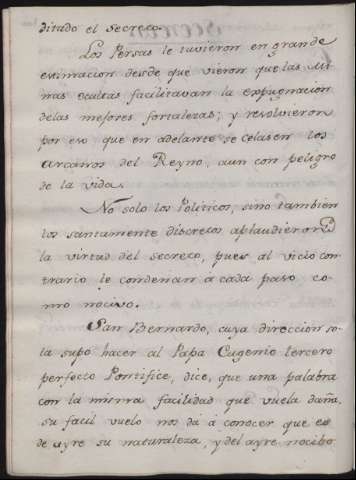 ditado el secreto.
Los Persas le tuvieron en grande
estimacion desde que vieron que las Mi
nas ocultas facilitavan la expugnacion
de las mejores fortalezas; y resolvieron
por eso que en adelante se celasen los
arcanos del Reyno, aun con peligro
de la vida.
No solo los Politicos, sino tambien
los santamente discretos aplaudieron
la virtud del secreto, pues al vicio con
trario le condenan a cada paso co-
mo nocivo.
San Bernardo, cuya direccion so-
la supo hacer al Papa Eugenio tercero
perfecto Pontifice, dice, que una palabra
con la misma facilidad que vuela daña,
su facil vuelo nos dá á conocer que es
de ayre su naturaleza, y del ayre nocibo